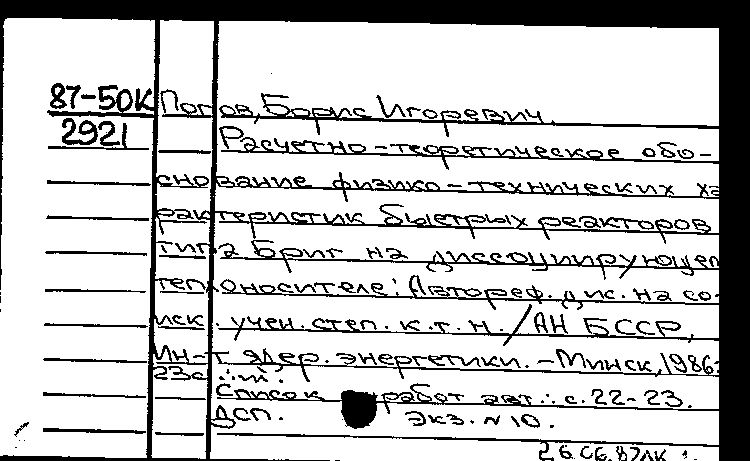 87-50К Попов, Борис Игоревич.
2921 Расчетно-теоретическое обо-
снование физико-технических ха
рактеристик быстрых реакторов
типа Бриг на диссоциирующем
теплоносителе: Автореф. дис. на со-
иск. учен. степ. к.т.н. / АН БССР,
Ин-т ядер. энергетики. - Минск, 1986.
23с
Список работ авт.: с. 22-23.
ДСП. Экз. № 10.